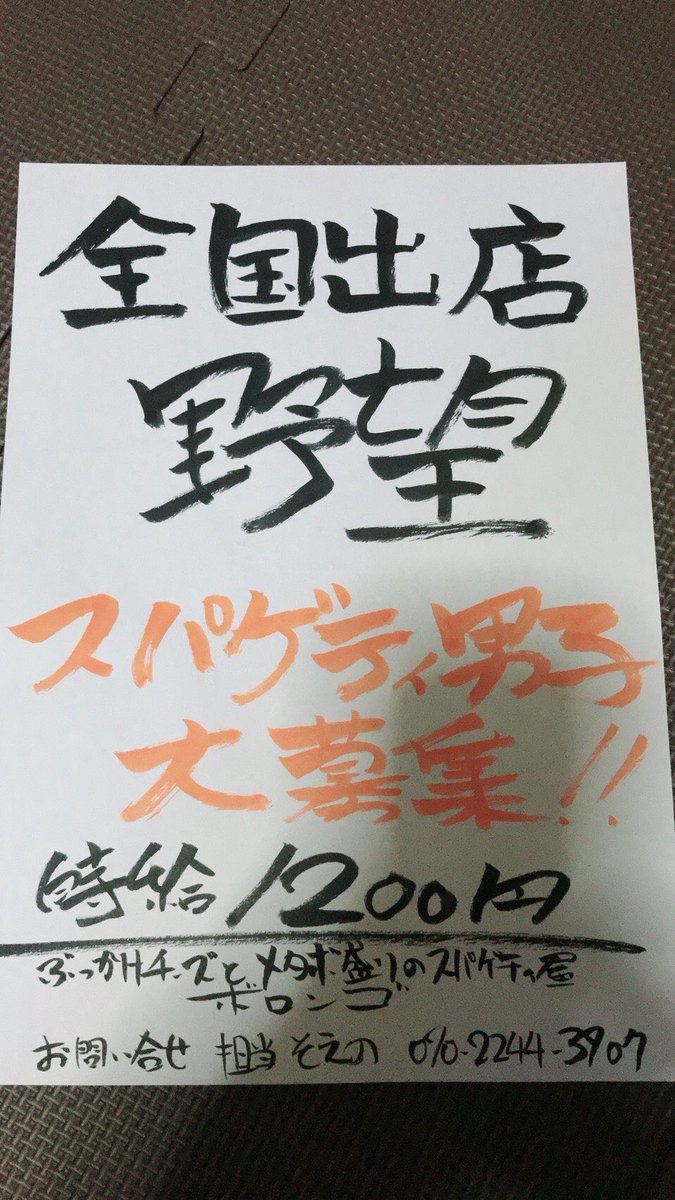 全国出店
野望
スパゲティ男子
大募集!!
時給1200円
ぶっかけチーズとメタボ盛りのスパゲティ屋
ボロンゴ
お問い合せ 担当 そえの 070-2244-3907